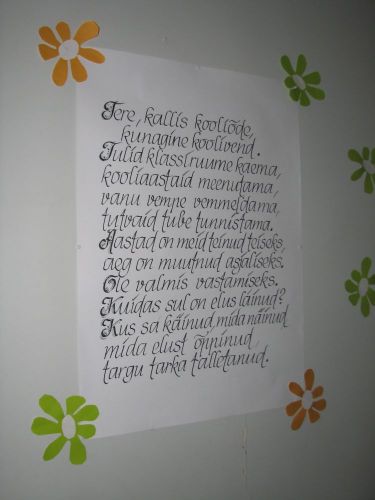 Tere, kallis koolõde,
kunagine koolivend.
Tulid klassiruume kaema,
kooliaastaid meenutama,
vanu vempe vemmeldama,
tutvaid tube tunnistama.
Aastad on meid teinud teiseks,
aeg on muutnud asjaliseks.
Ole valmis vastamiseks.
Kuidas sul on elus läinud?
Kus sa käinud, mida näinud,
mida elust õppinud,
targu tarka talletanud.